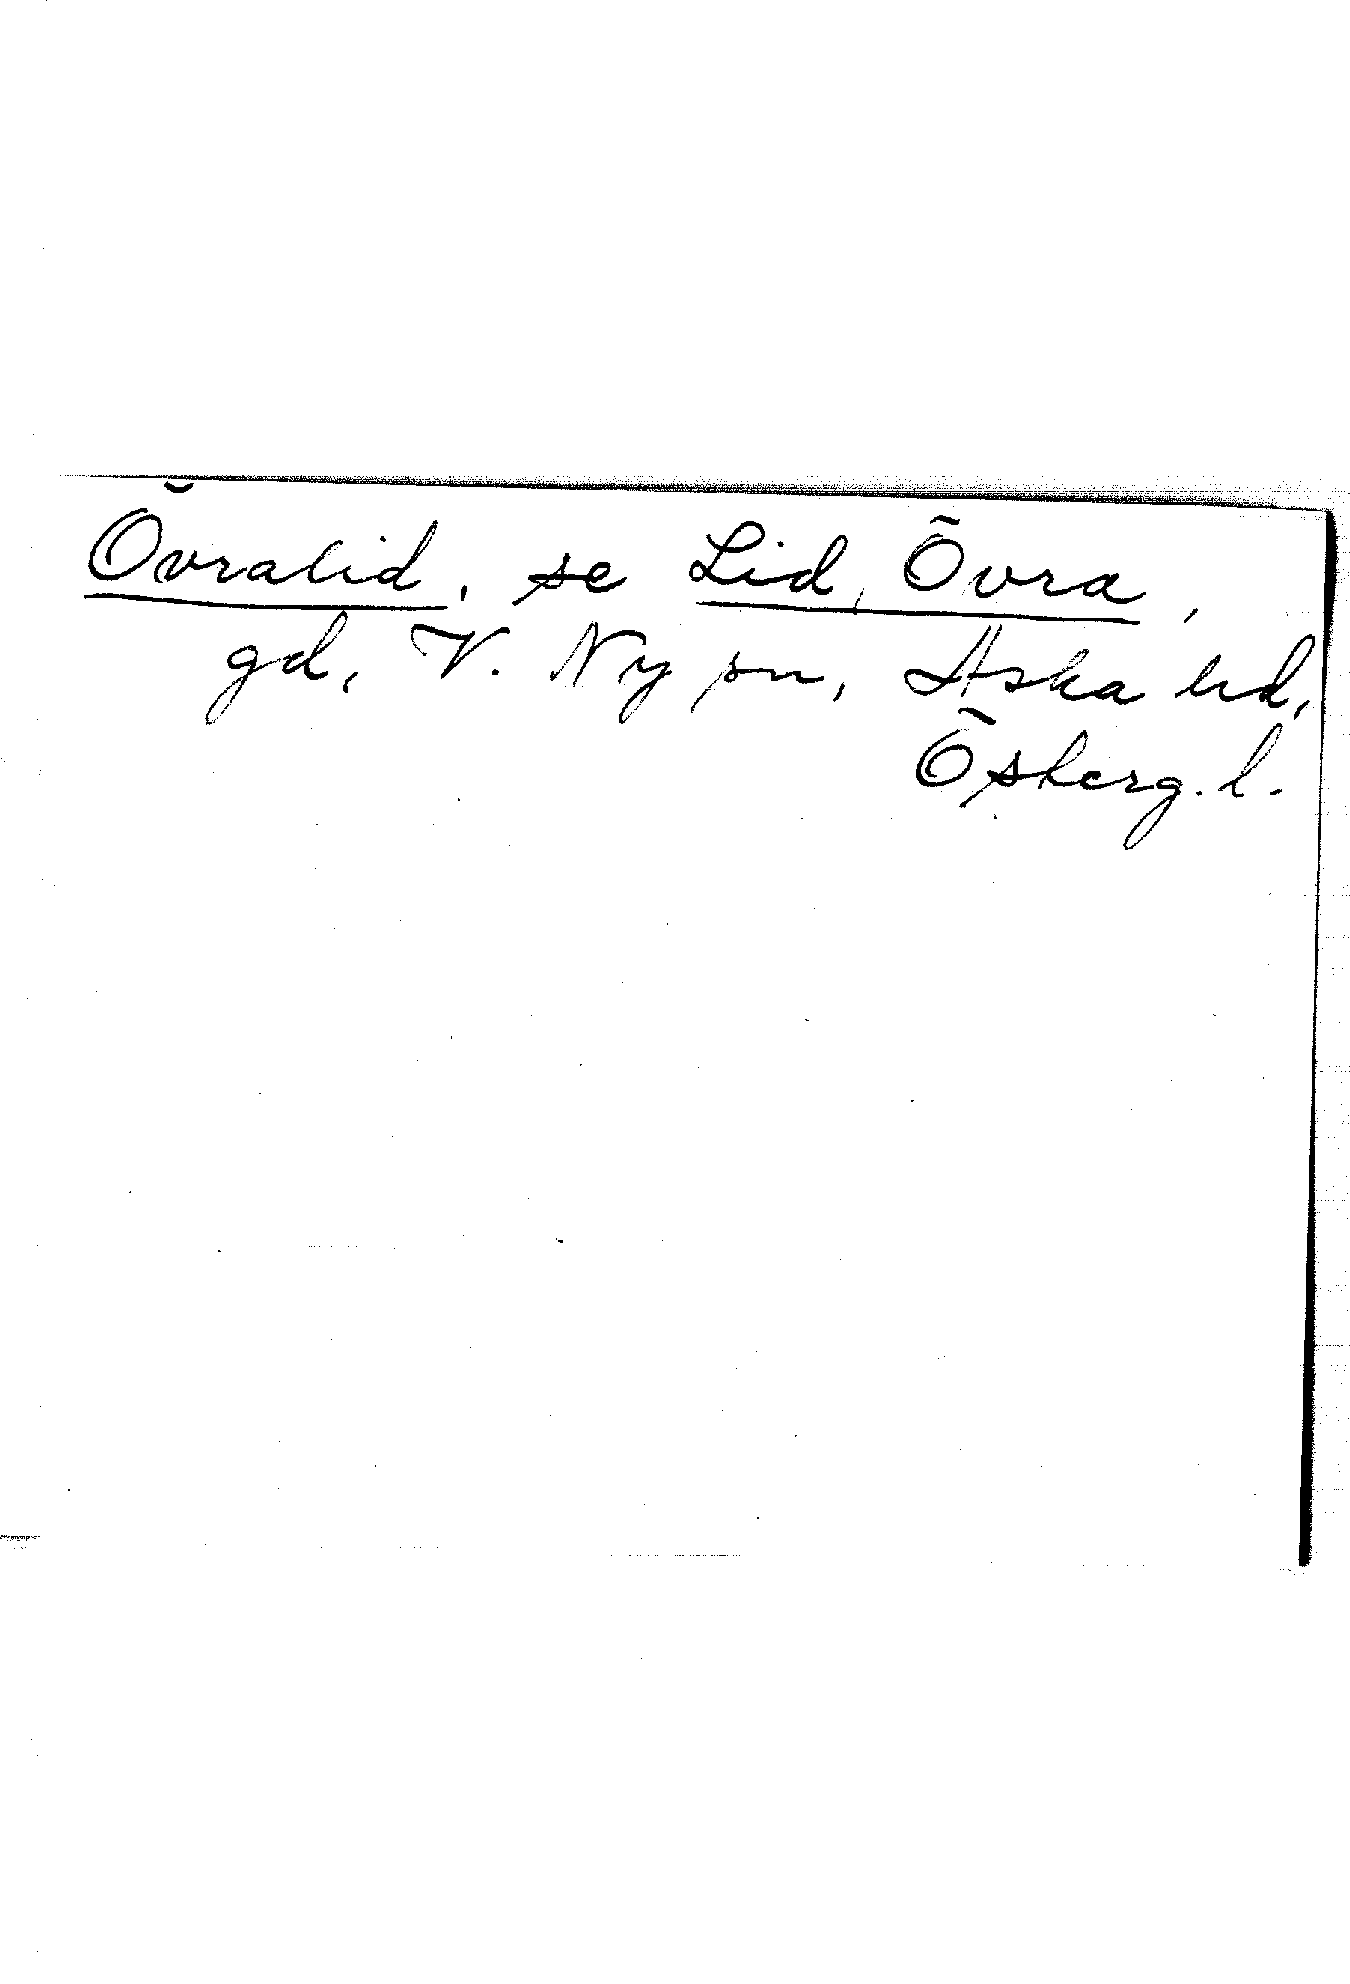 Övralid, se Lid, Övra,
gd, V. Ny sn, Aska hd,
Österg. l.